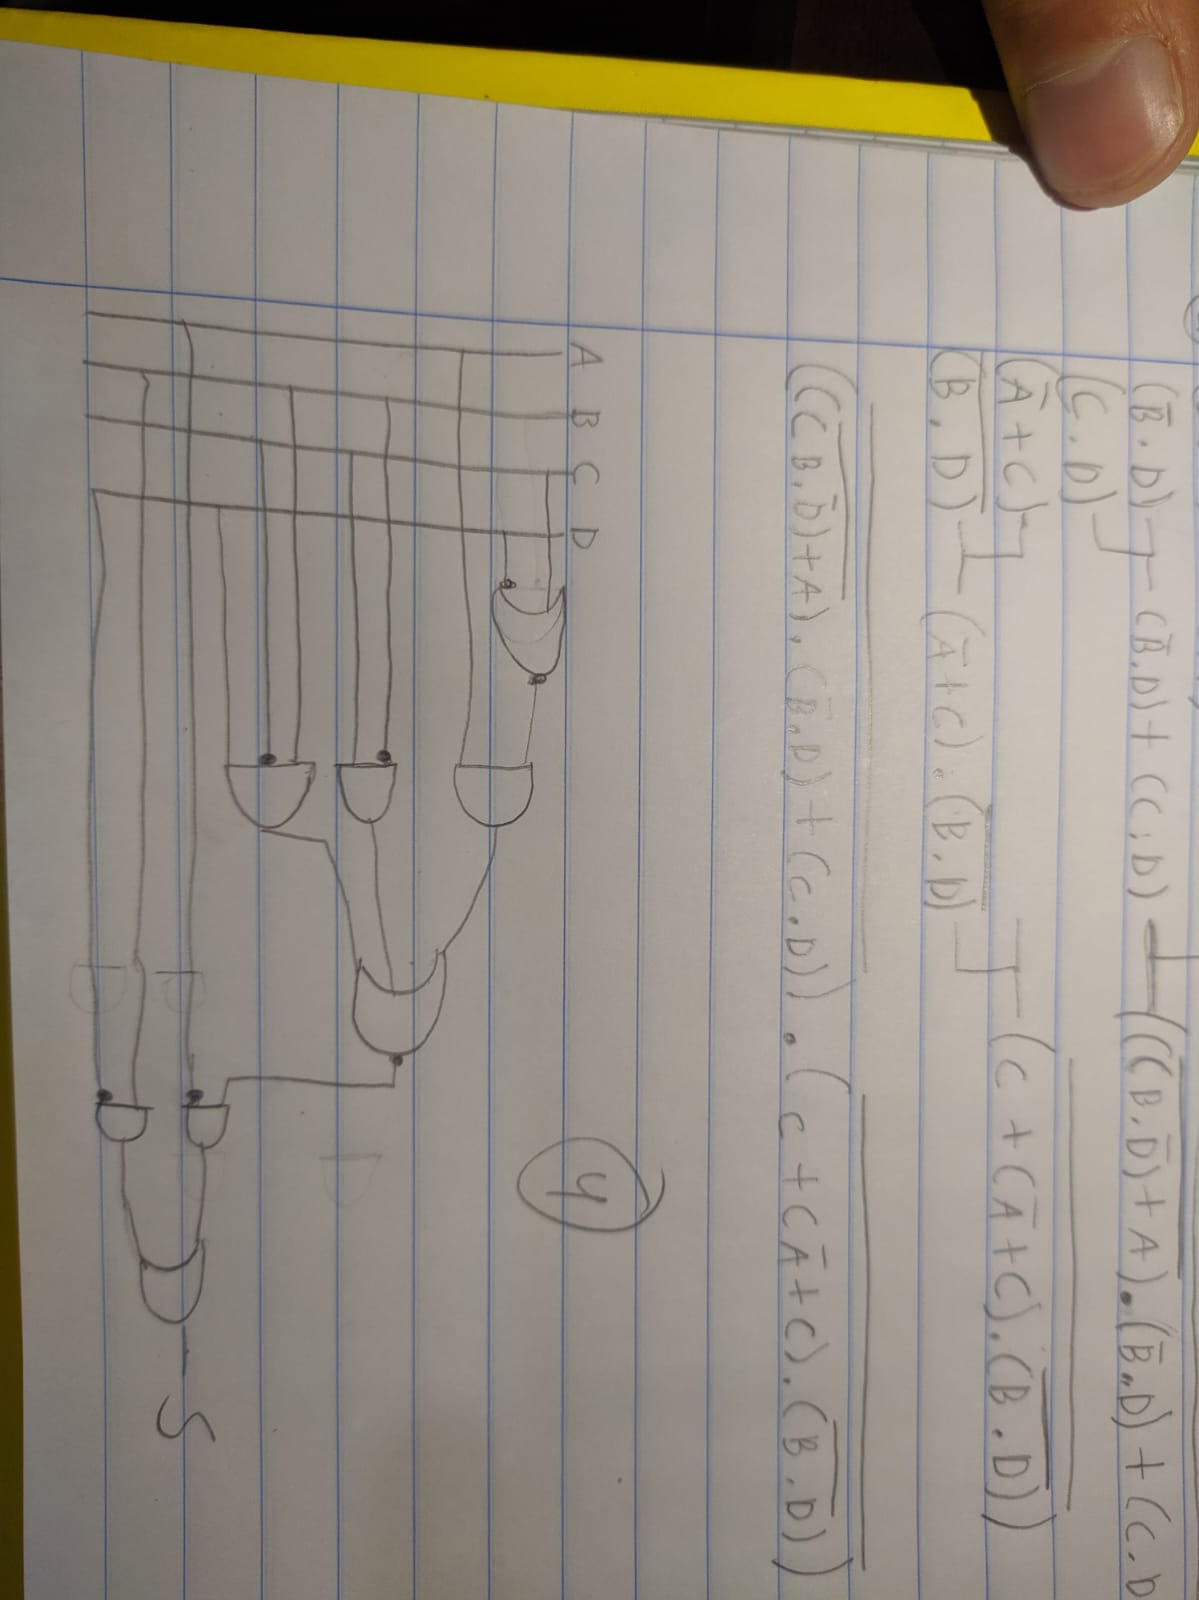 (B̅.D)
(B̅.D)+(C.D)
((C̅B̅.̅D̅)+A).(B̅.D)+(C.D
(C.D)
(A̅+C)
(C+(A̅+C).(B̅.̅D̅))
(B̅.̅D̅)
(A̅+C).(B̅.̅D̅)
((B.D̅)+A).(B̅.D)+(C.D)).(C+(A̅+C).(B̅.̅D̅))
4
A B C D
S